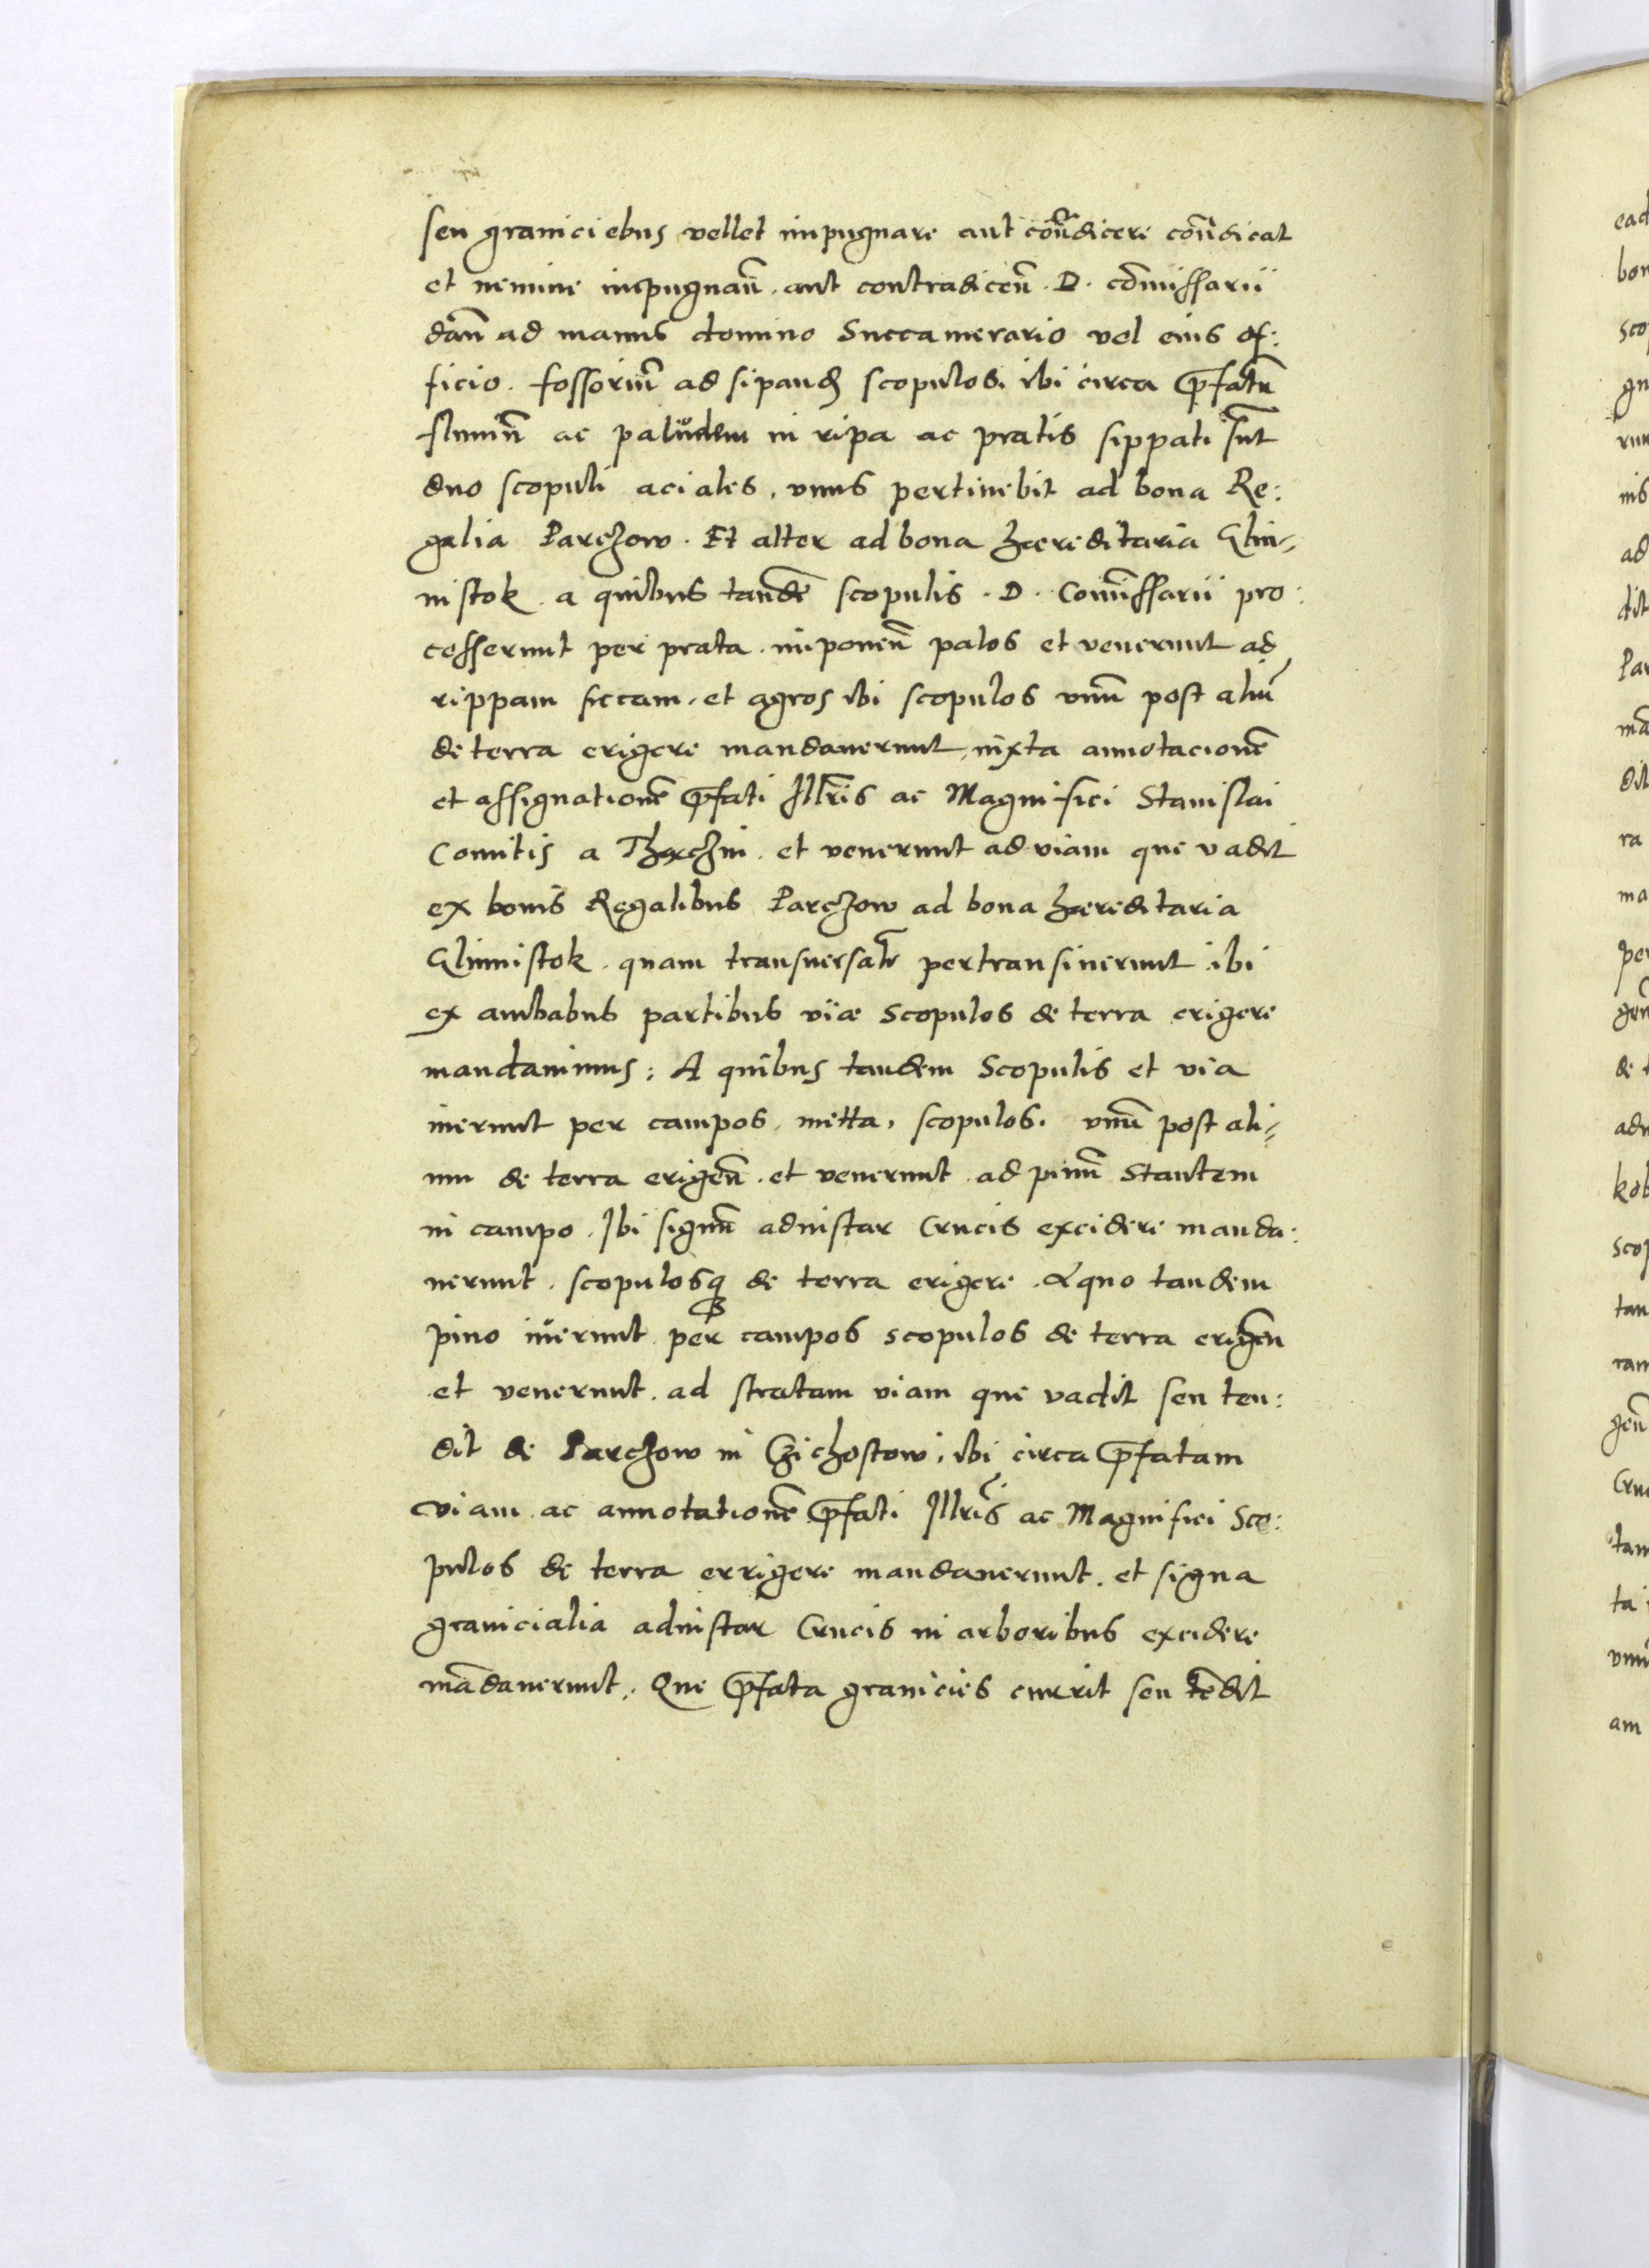 seu graniciebus vellet impugnare aut con̄dicere con̄dicat
et nemine impugnan̄. aut contradicen̄. D. com̄issarii
dan̄ ad manus domino Succamerario vel eius of:
ficio. fossoriūm ad sipand̄ scopulos. ibi circa p̄fatū
flumen̄ ac paludem in ripa ac pratis sippati sūt
duo scopuli aciales, vnus pertinebit ad bona Re:
galia Parczow. Et alter ad bona hæreditaria Glin-
nistok. a quibus tandē scopulis. D. Com̄issarii pro:
cesserunt per prata. imponen̄ palos et venerunt ad
rippam siccam. et agros ibi scopulos vnū post aliū
de terra erigere mandauerunt, iuxta annotacionē
et assignationē p̄fati Jllr̄is ac Magnifici Stanislai
Comitis a Thæczin. et venerunt ad viam que vadit
ex bonis Regalibus Parczow ad bona hæreditaria
Glinnistok. quam transuersalr̄ pertransiuerunt. ibi
ex ambabus partibus viæ Scopulos de terra erigere
mandauimus: A quibus tandem Scopulis et via
iuerunt per campos. metta, scopulos. vnū post ali-
um de terra erigen̄. et venerunt. ad pinū Stantem
in campo. Jbi signū adinstar Crucis excidere manda:
uerunt. scopulosq de terra erigere. A quo tandem
pino iuerunt per campos scopulos de terra erigēn
et venerunt. ad stratam viam que vadit seu ten:
dit de Parczow in Czichostow, ibi circa p̄fatam
viam ac annotationē p̄fati Jllris̄ ac Magnifici Sco:
pulos de terra errigere mandauerunt. et signa
granicialia adinstar Crucis in arboribus excidere
mādauerunt. Que p̄fata granicies currit seu tēdit